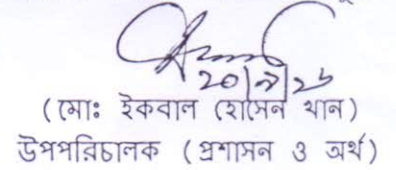 (মোঃ ইকবাল হোসেন খান)
উপপরিচালক (প্রশাসন ও অর্থ)